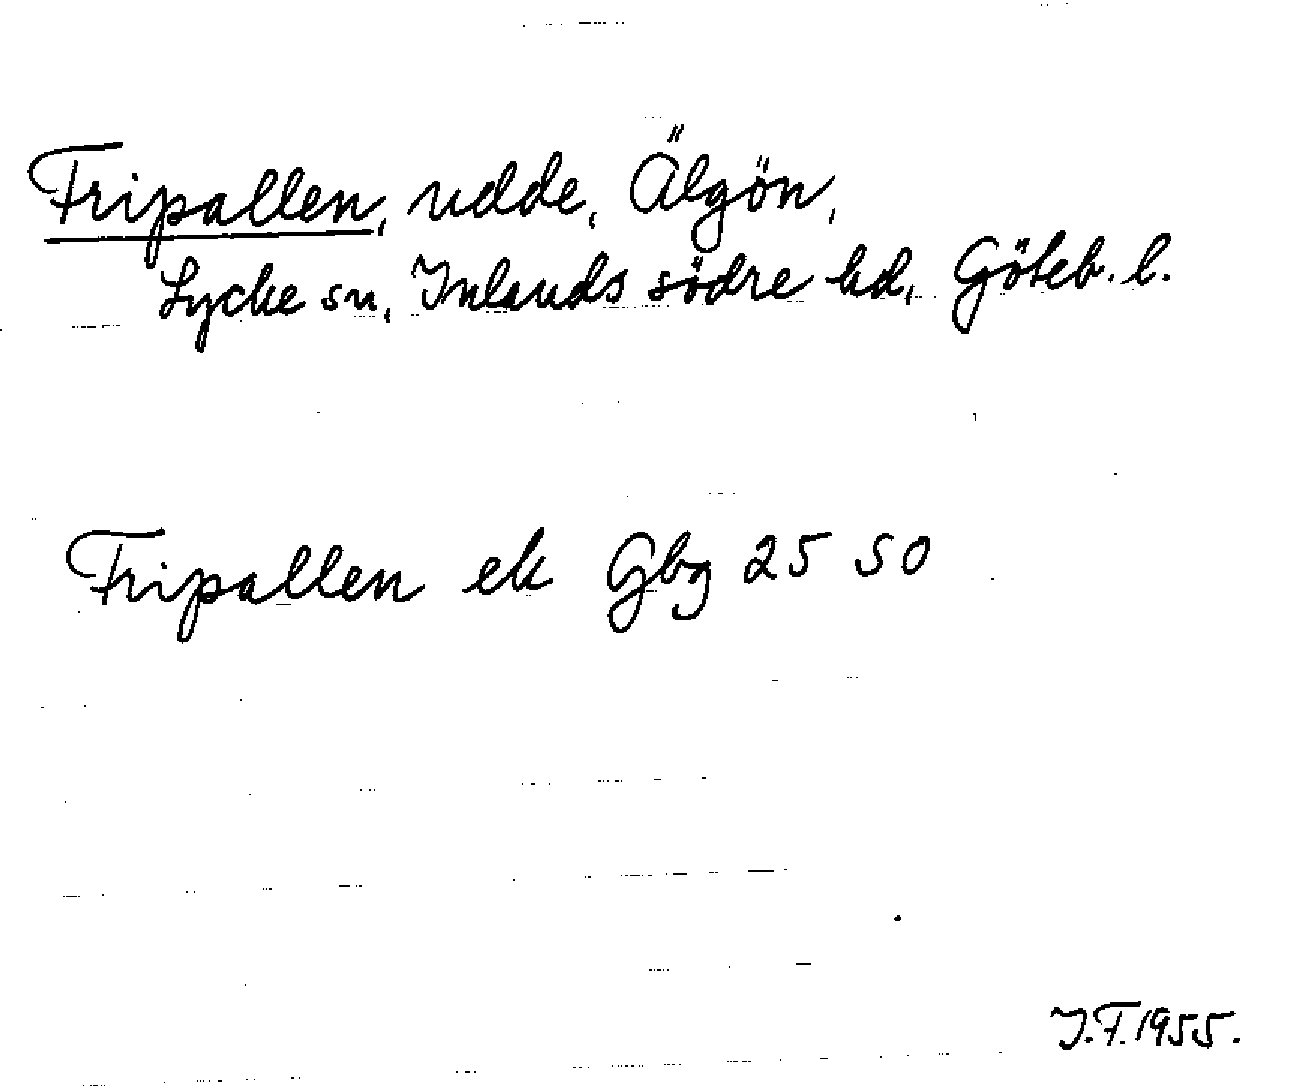 Fripallen, udde, Älgön,
Lycke sn, Inlands södre hd, Göteb. l.
Fripallen ek Gbg 25 50
I.F. 1955.